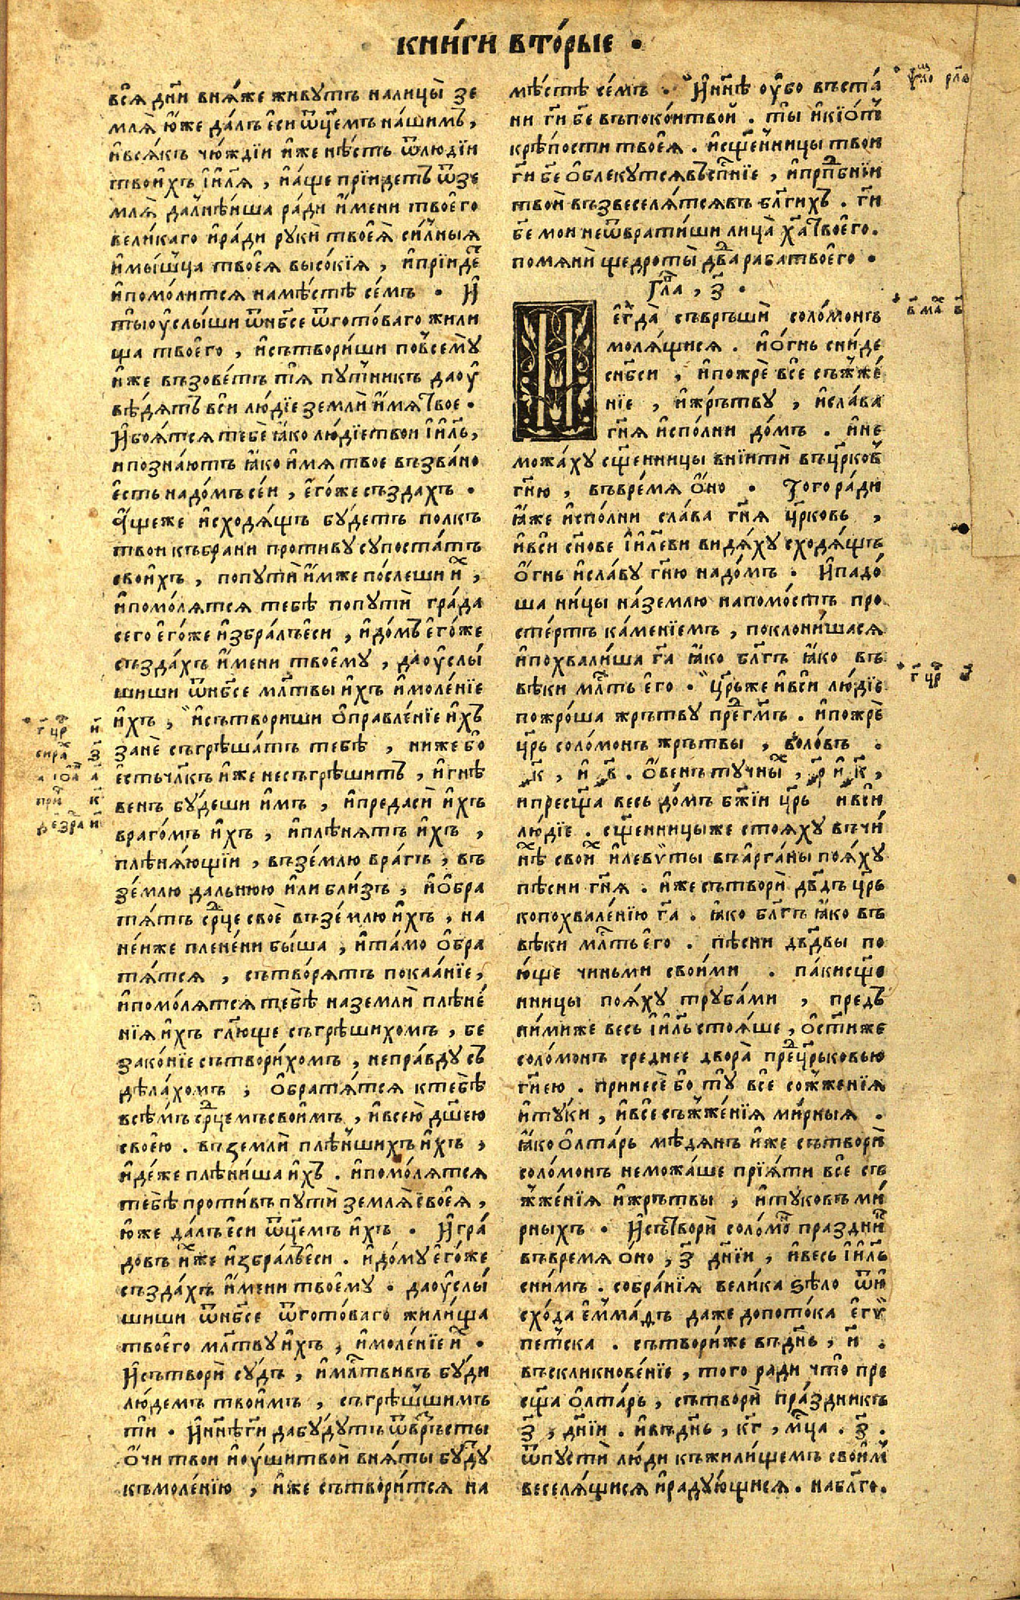 книги вторые ·
всѧ дн҃и внѧже живутъ налицы зе
млѧ ю҆же далъ є҆си ѿц҃емъ нашимъ,
и҆всѧкъ чюждїи и҆же нѣсть ѿлюдїи
твои҆хъ і҆и҃лѧ , и҆аще прїидетъ ѿзе
млѧ далнѣиша ради и҆мени твоє҆го
великаго и҆ради руки твоє҆ѧ силныѧ
и҆мышца твоє҆ѧ высокїѧ , и҆прїидет
и҆помолитсѧ намѣстѣ семъ · И҆
ты оу҆слыши ѿнб҃се ѿготоваго жили
ща твоє҆го , и҆сътвориши повсему
и҆же възоветъ тїѧ путникъ даоу҆
вѣдѧтъ вси людїе земли и҆мѧ твое ·
И҆боѧтсѧ тебѣ ꙗ҆ко людїетвои і҆и҃ль,
и познаютъ ꙗ҆ко и҆мѧ твое възвано
є҆сть надомъ сеи , є҆гоже създахъ ·
А҆щеже и҆сходѧщъ будетъ полкъ
твои къбрани противу супостатъ
свои҆хъ , попути и҆мже послеши и҆х ,
и҆помолѧтсѧ тебѣ попути града
сего є҆гоже и҆збралъє҆си , и҆домъ є҆гоже
създахъ и҆мени твоє҆му , даоу҆слы
шиши ѿнб҃се мл҃твы и҆хъ и҆моленїе
и҆хъ , и҆сътвориши о҆правленїе и҆хъ
зане съгрѣшатъ тебѣ , ниже бо
є҆стьчл҃къ и҆же несъгрѣшитъ , и҆гнѣ
венъ будеши и҆мъ , и҆предаси и҆хъ
врагомъ и҆хъ , и҆плѣнѧтъ и҆хъ ,
плѣнѧющїи , въземлю врагъ , въ
землю дальнюю и҆ли близъ , и҆о҆бра
тѧтъ срдце свое въземлю и҆хъ , на
неиже пленени быша , и҆тамо о҆бра
тѧтсѧ , сътворѧтъ покаанїе,
и҆помолѧтсѧ тебѣ наземли плѣне
нїѧ и҆хъ гл҃юще съгрѣшихомъ , бе
законїе сътворихомъ , неправду съ
дѣлахомъ , о҆братѧтсѧ ктебѣ
всѣмъ срдцемъ свои҆мъ , и҆всею дш҃ею
своє҆ю . въземли плѣншихъ и҆хъ ,
и҆деже плѣниша и҆хъ . и҆помолѧтсѧ
тебѣ противъ пути землѧ своє҆ѧ ,
ю҆же далъ є҆си ѿц҃емъ и҆хъ · И҆гра
довъ и҆хже и҆збралъє҆си . и҆дому є҆гоже
създахъ и҆мени твоє҆му · даоу҆слы
шиши ѿнб҃се ѿготоваго жилища
твоего мл҃тву и҆хъ , и҆моленїе и҆х ·
И҆сътвори судъ , и҆мл҃тивъ буди
людемъ твои҆мъ , съгрѣшшимъ
ти · И҆ нн҃ѣ гн҃ дабудутъ ѿвръсты
о҆чи твои и҆оу҆ши твои внѧты буду
къмоленїю , и҆же сътворитсѧ на
мѣстѣ семъ . И҆ нн҃ѣ оу҆бо въста
ни гн҃и бе҃ въпокои твои . ты и҆кїо҆т
крѣпости твоеѧ . и҆сщ҃енницы твои
гн҃и бе҃ о҆блекутсѧ въсп҃нїе , и҆прпдбнїи
твои възвеселѧтсѧ въ бл҃гихъ . гн҃и
бе҃ мои неѿвратиши лица хр҃а твоє҆го.
помѧни щедроты дв҃да раба твоє҆го ·
Гл҃а , з҃ ·
И
є҆гда съвръши соломонъ
молѧщисѧ . и҆о҆гнь сниде
снб҃си , и҆пожре все съжже
нїе , и҆жрътву , и҆слава
гн҃ѧ и҆сполни домъ . и҆не
можаху сщ҃енницы внїити вцр҃ковь
гн҃ю , въвремѧ о҆но · Того ради
ꙗ҆же и҆сполни слава гн҃ѧ цр҃ковь ,
и҆вси сн҃ове і҆и҃леви видѧху сходѧщъ
о҆гнь и҆славу гн҃ю надомъ . И҆падо
ша ницы наземлю напомостъ про
стертъ каменїемъ , поклонишасѧ
и҆похвалиша гн҃а ꙗ҆ко бл҃гъ ꙗ҆ко въ
вѣки мл҃ть є҆го . цр҃ьже и҆вси людїе
пожроша жрътву пред гм҃ъ . и҆пожре
цр҃ь соломонъ жрътвы , воловъ .
к҃ , и҆ в҃ . О҆венъ тучных , р҃ и҆ к҃ ,
и пресщ҃а весь домъ бж҃їи цр҃ь и҆вси
людїе . сщ҃енницыже стоѧху въчи
нѣх своих и҆левгиты въѡрганы поѧху
пѣсни гн҃ѧ . и҆же сътвори дв҃дъ цр҃ь
копохваленїю гн҃а . ꙗ҆ко бл҃гъ ꙗ҆ко въ
вѣки мл҃ть є҆го . пѣсни дв҃довы по
ю҆ще чиньми своими . паки сщ҃е
нницы поѧху трубами , предъ
нимиже весь і҆и҃ль стоѧше , о҆стиже
соломонъ среднее двора пред цр҃ьковью
гн҃ею . принесе бо ту все сожженїѧ
и҆туки , и҆все съжженїѧ мирныѧ .
ꙗ҆ко о҆лтарь мѣдѧнъ и҆же сътвори
соломонъ неможаше прїѧти все съ
жженїѧ и҆жрътвы , и҆туковъ ми
рныхъ · И҆сътвори соломон праздник
въвремѧ о҆но , з҃ дн҃їи , и҆весь і҆и҃ль
снимъ . собранїѧ велика ѕѣло ѿи҆
схода є҆ммадъ даже допотока є҆гѵ
петска . сътвориже въдн҃ь , и҃ .
въскликновенїе , того ради что пре
сщ҃а о҆лтарь , сътвори праздникъ
з҃ , дн҃їи . и҆въдн҃ь , кг҃ , мс҃ца . з҃ .
ѿпусти люди къжилищемъ своим
веселѧщисѧ и҆радующисѧ . набл҃го.